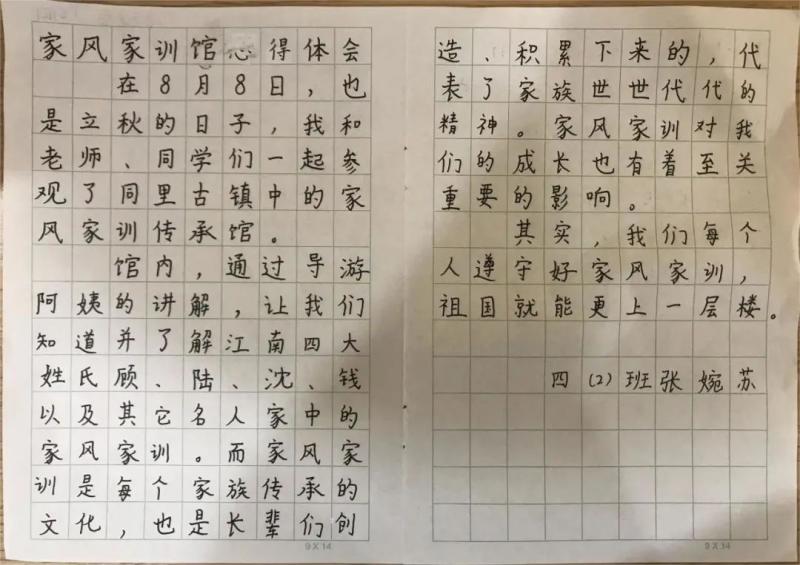 家风家训馆心得体会
在8月8日，也
是立秋的日子，我和
老师、同学们一起参
观了同里古镇中的家
风家训传承馆。
馆内，通过导游
阿姨的讲解，让我们
知道并了解江南四大
姓氏顾、陆、沈、钱
以及其它名人家中的
家风家训。而家风家
训是每个家族传承的
文化，也是长辈们创
9X14
造、积累下来的，代
表了家族世世代代的
精神。家风家训对我
们的成长也有着至关
重要的影响。
其实，我们每个
人遵守好家风家训，
祖国就能更上一层楼。
四（2）班张婉苏
9X14